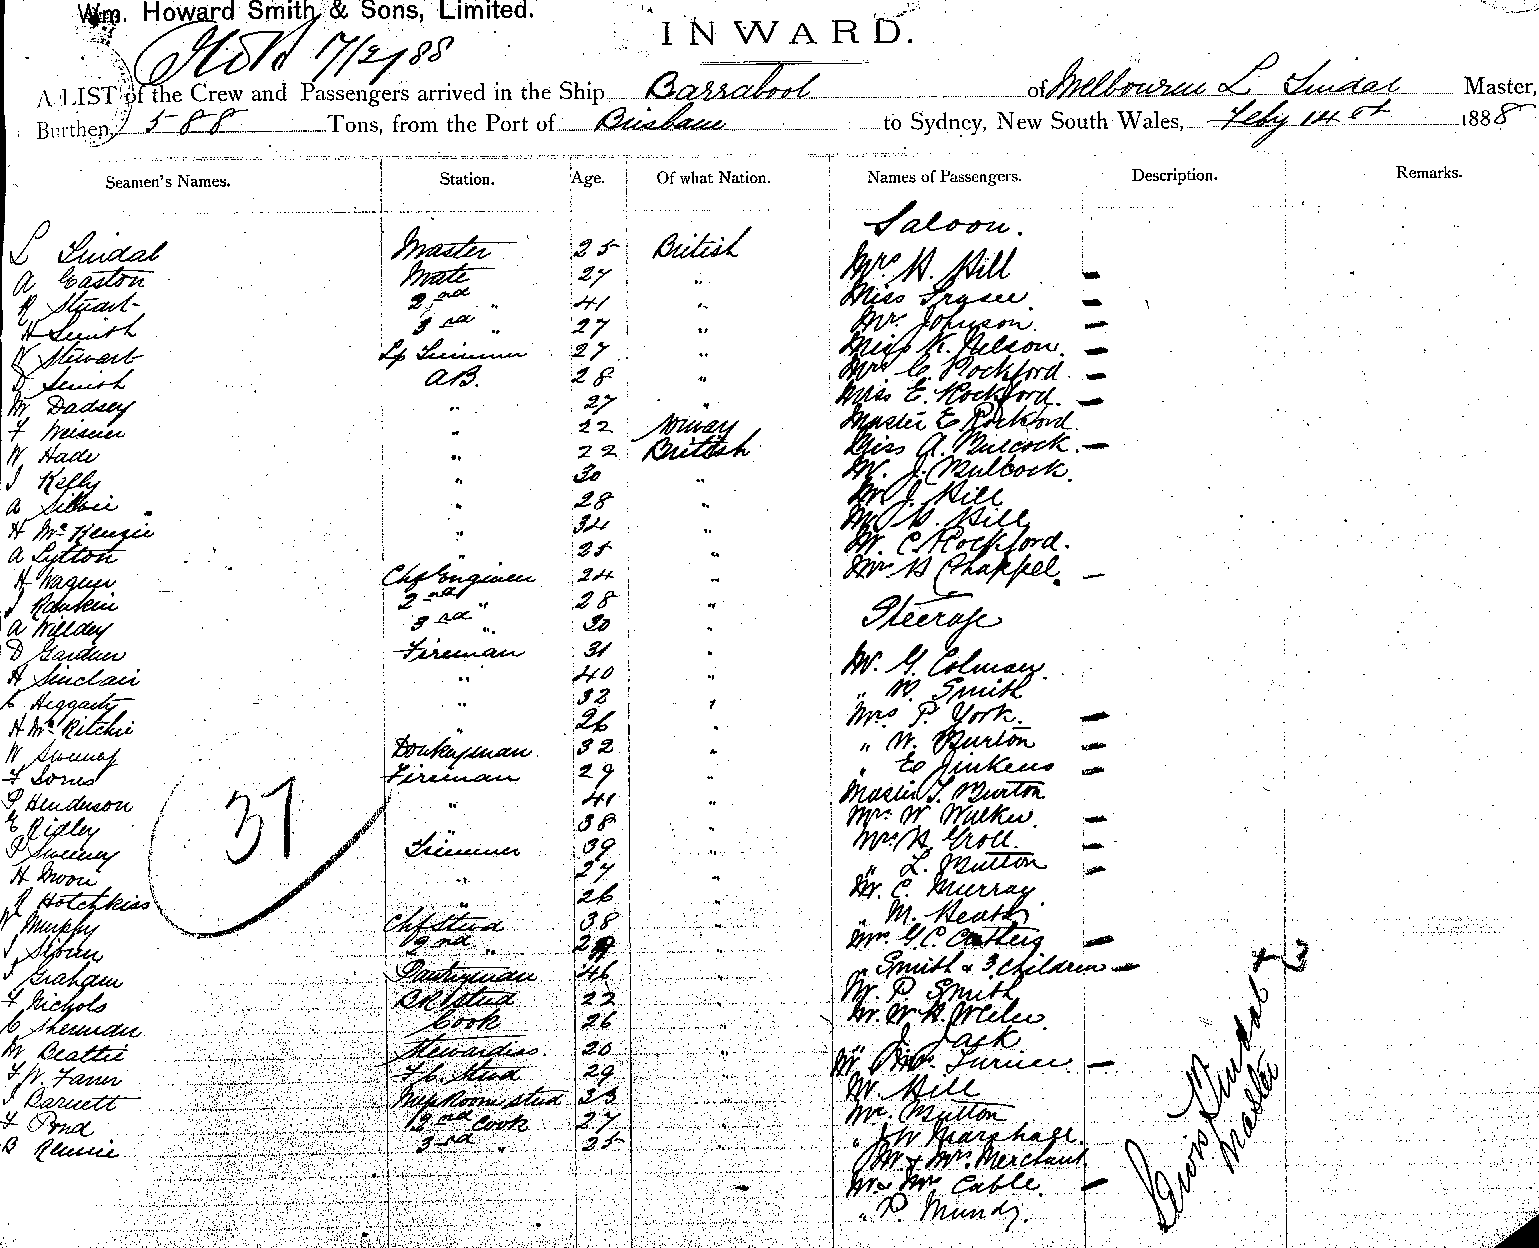 Wm. Howard Smith & Sons, Limited.
INWARD.
17/2/88
A LIST of the Crew and Passengers arrived in the Ship Barrabool of Melbourne L Lindal Master,
Burthen, 588 Tons, from the Port of Brisbane to Sydney, New South Wales, Feby 14 1888
Seamen's Names. Station. Age. Of what Nation. Names of Passengers. Description. Remarks.
Saloon.
L Lindal Master 25 British Mrs H. Hill
A Easton Mate 27 " Miss Fraser
R Stuart 2nd " 41 " Mr. Johnson
H Smith 3rd " 27 " Miss K. Nelson
Stewart Lp Trimmer 27 " Mrs C. Rockford
Smith A.B. 28 " Miss E. Rockford
W Dadsey " 27 " Master E Rockford
F " 22 Norway Miss A. Mulcock
W Hade " 22 British Mr. J. Mulcock
J Kelly " 30 " Mr J. Hill
A " 28 " Mr H. Hill
H McKenzie " 34 " Mr. C. Rockford
A Lytton " 25 " Mrs H Chappel
H Wagner Chf Engineer 24 "
J Rankin 2nd " 28 " Steerage
A Willdey 3rd " 30 "
D Gardner Fireman 31 " Mr. G. Colman
H Sinclair " 40 " " W. Smith
C Heggarty " 32 " Mrs P. York
H McRitchie " 26 " " W. Burton
W Sweeney Donkeyman 32 " " E Jinkens
F Jones Fireman 29 " Master T. Burton
P Henderson " 41 " Mrs W Walker
E Ridley " 38 " Mrs H Groll
P Sweeney Trimmer 39 " " L. Mutton
H Moon " 27 " Mr. C. Murray
R Hotchkiss " 26 " " M. Heath
W Murphy Chf Stud 38 " Mrs G. C.
J 2nd " " " Smith & 3 Children
J Graham Pantryman 46 " Mr. P Smith
F Nichols Bk Stud 22 " Mr. W. H.
C Sherman Cook 26 " J. Jack
M Beattie Stewardess 20 " Mr Mrs. Turner
F W. Faner F.C. Stud 29 " Mr. Hill
J Barnett Messroom Stud 33 " Mr. Mutton
F Pond 2nd Cook 27 " " J W Marshall
B Rennie 3rd " 25 " Mr & Mrs. Merchant
Mr Mrs Cable
" P. Mundy
37
Lewis Lindal
Master